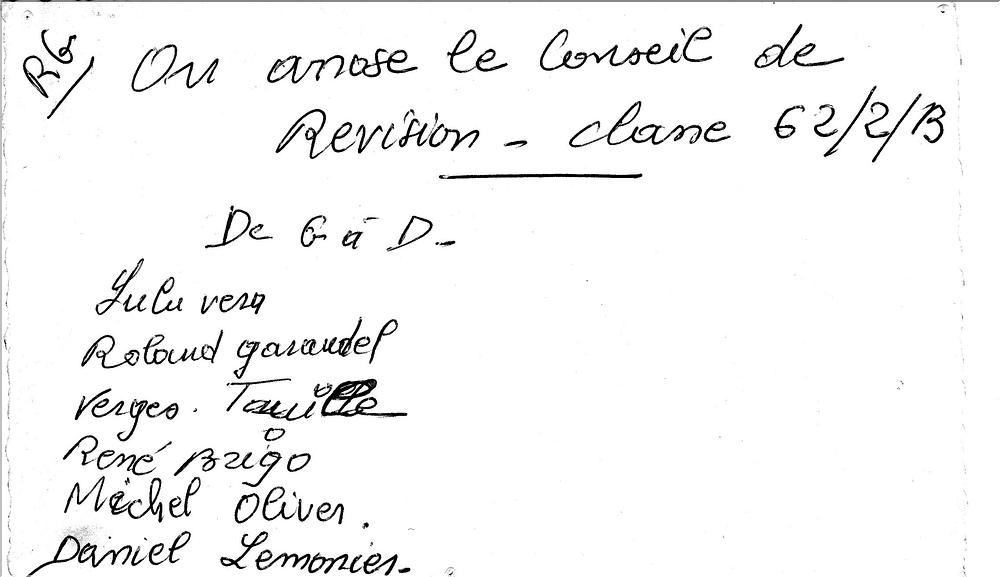 RG/ On arrose le Conseil de
Revision - classe 62/2/B
De G à D-
Lulu vera
Roland garaudel
Verges.
René Brigo
Michel Oliver.
Daniel Lemonier-